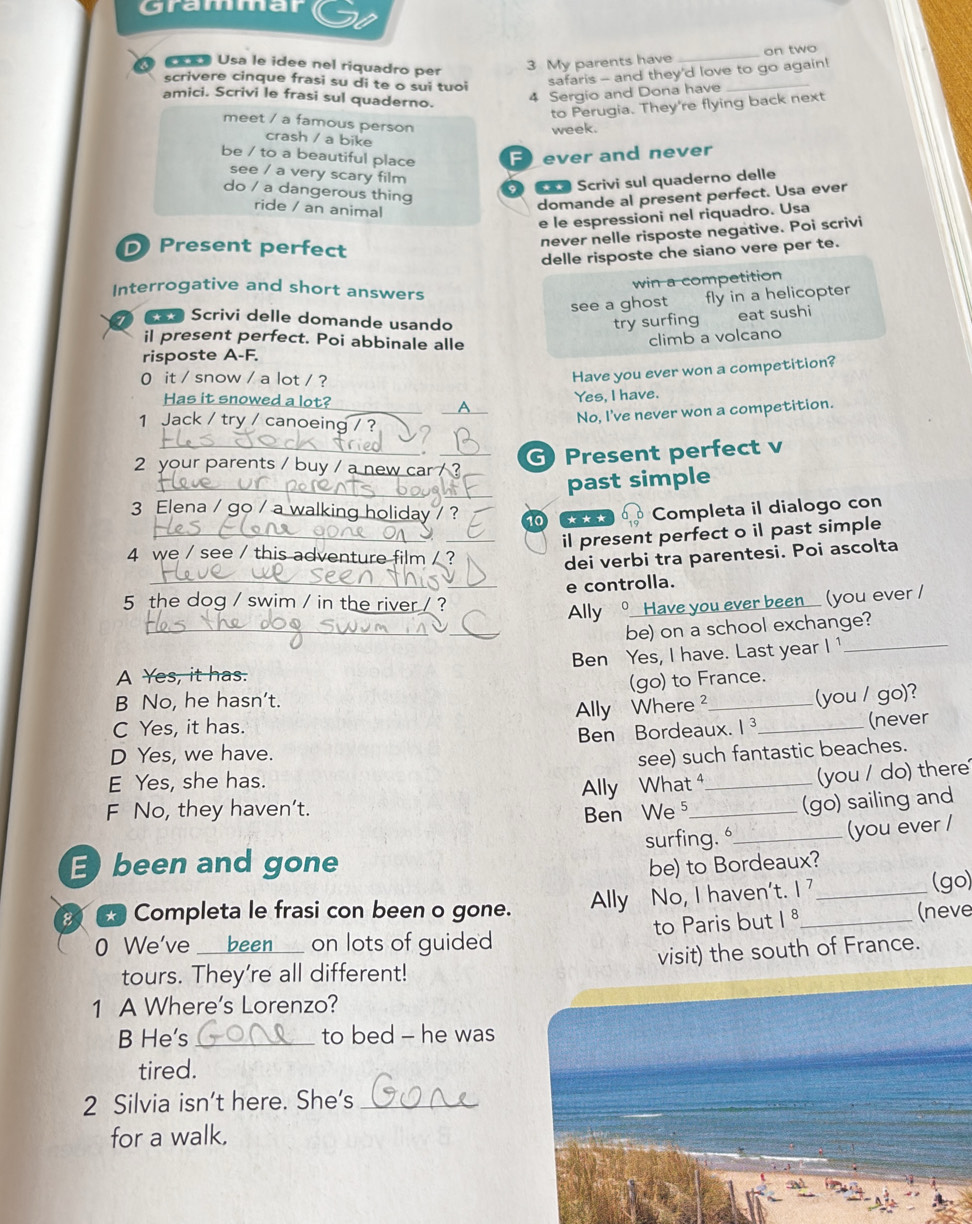 Grammar
6 Usa le idee nel riquadro per
scrivere cinque frasi su di te o sui tuoi
amici. Scrivi le frasi sul quaderno.
meet / a famous person
crash / a bike
be / to a beautiful place
see / a very scary film
do / a dangerous thing
ride / an animal
D Present perfect
Interrogative and short answers
7 Scrivi delle domande usando
il present perfect. Poi abbinale alle
risposte A-F.
0 it / snow / a lot / ?
Has it snowed a lot? A
1 Jack / try / canoeing / ?
Has Jock tried ? B
2 your parents / buy / a new car / ?
Have ur perents bought F
3 Elena / go / a walking holiday / ?
Hes Elene gone on E
4 we / see / this adventure film / ?
Heve we seen this D
5 the dog / swim / in the river / ?
Hes the dog swum in C
A Yes, it has.
B No, he hasn't.
C Yes, it has.
D Yes, we have.
E Yes, she has.
F No, they haven't.
E been and gone
8 Completa le frasi con been o gone.
0 We've been on lots of guided
tours. They're all different!
1 A Where's Lorenzo?
B He's GONE to bed – he was
tired.
2 Silvia isn't here. She's Gone
for a walk.
3 My parents have ______ on two
safaris – and they'd love to go again!
4 Sergio and Dona have ______
to Perugia. They're flying back next
week.
F ever and never
9 Scrivi sul quaderno delle
domande al present perfect. Usa ever
e le espressioni nel riquadro. Usa
never nelle risposte negative. Poi scrivi
delle risposte che siano vere per te.
win a competition
see a ghost fly in a helicopter
try surfing eat sushi
climb a volcano
Have you ever won a competition?
Yes, I have.
No, I've never won a competition.
G Present perfect v
past simple
10 19 Completa il dialogo con
il present perfect o il past simple
dei verbi tra parentesi. Poi ascolta
e controlla.
Ally 0 Have you ever been (you ever /
be) on a school exchange?
Ben Yes, I have. Last year I 1 ______
(go) to France.
Ally Where 2 ______ (you / go)?
Ben Bordeaux. I 3 ______ (never
see) such fantastic beaches.
Ally What 4 ______ (you / do) there
Ben We 5 ______ (go) sailing and
surfing. 6 ______ (you ever /
be) to Bordeaux?
Ally No, I haven't. I 7 ______ (go)
to Paris but I 8 ______ (neve
visit) the south of France.